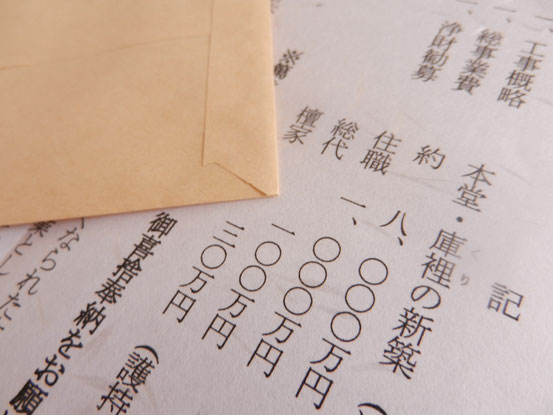 記
工事概略 本堂・庫裡の新築
くり
総事業費 約 八、〇〇〇万円
浄財勧募 住職 一、〇〇〇万円
総代 一〇〇万円
檀家 三〇万円 (護持
御喜捨奉納をお願
なられた